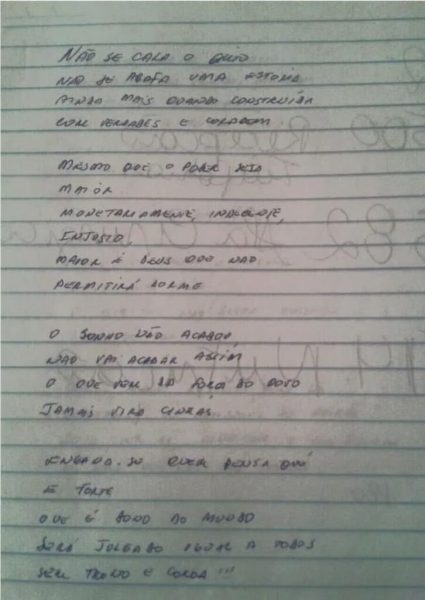 NÃO SE CALA O GRITO
NÃO SE ABAFA UMA ESTORIA
AINDA MAIS QUANDO CONSTRUIDA
COM VERDADES E CORAGEM
MESMO QUE O PODER SEJA
MAIOR
MONETARIAMENTE, INDULGENTE,
INJUSTO,
MAIOR É DEUS QUE NÃO
PERMITIRÁ DORME
O SONHO NÃO ACABOU
NÃO VAI ACABAR ASSIM
O QUE VEM DA FORÇA DO POVO
JAMAIS VIRA CINZAS
ENGANA-SE QUEM PENSA QUE
É FORTE
QUE É DONO DO MUNDO
SERÁ JULGADO IGUAL A TODOS
SEM TRONO E COROA!!!